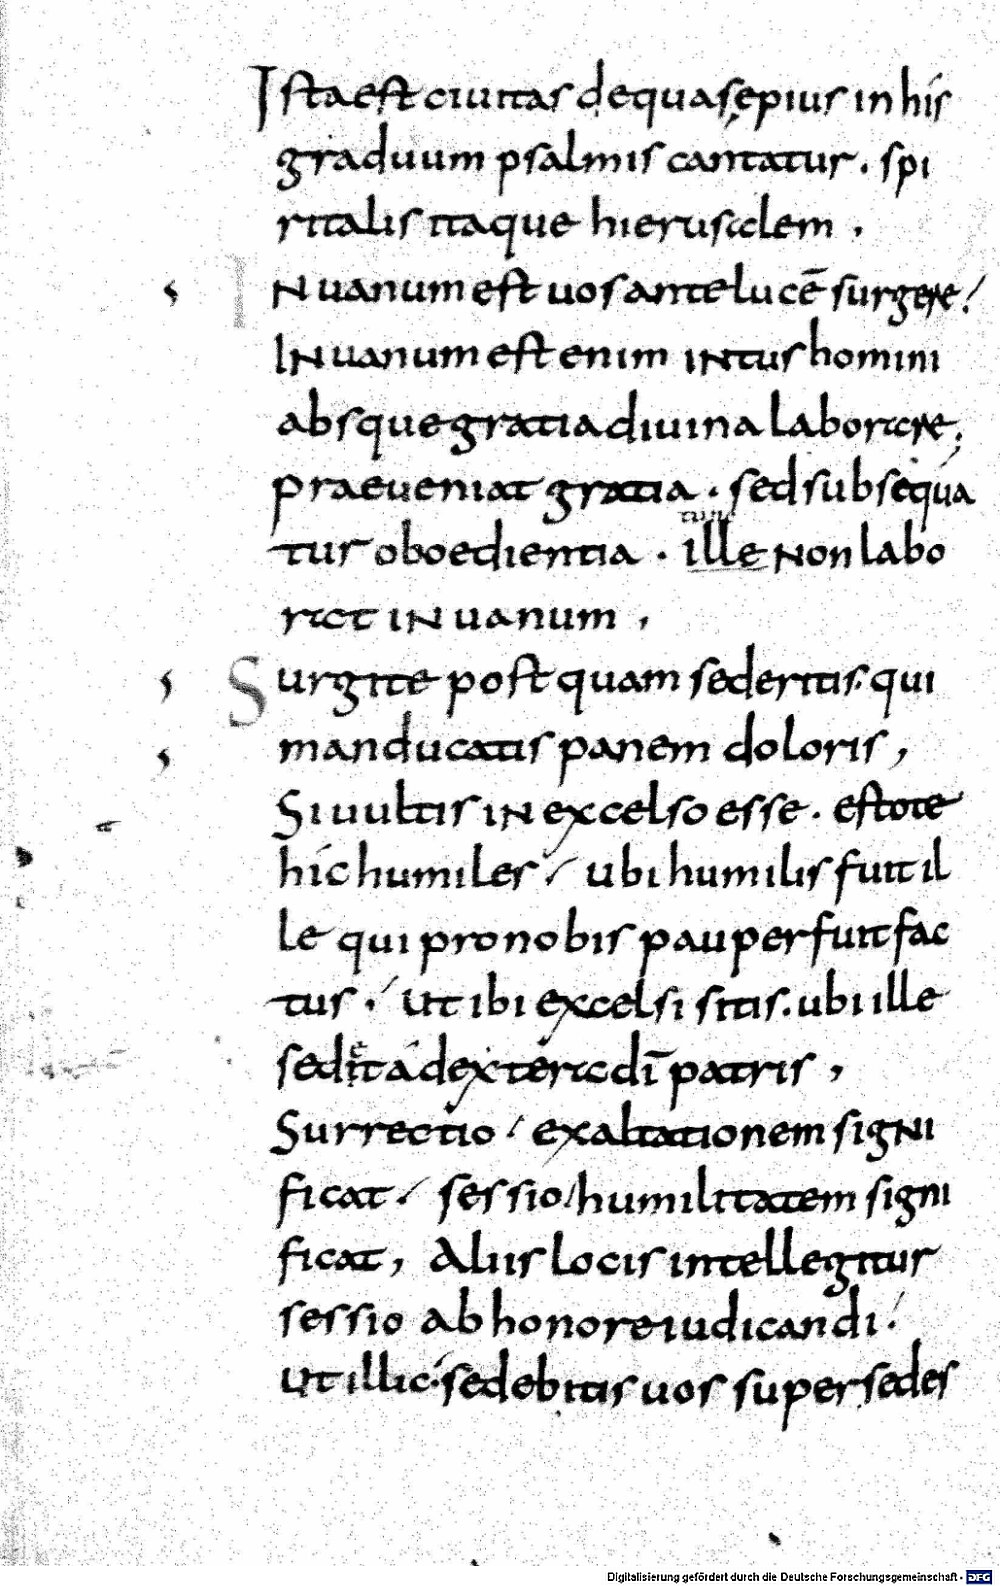 Ista est ciuitas de qua sępius in his
graduum psalmis cantatur. spi
ritalis itaque hierusalem,
IN uanum est uos ante lucē surgere!
IN uanum est enim intus homini
absque gratia diuina laborare;
praeueniat gratia. sed subsequa
tur oboedientia. ille non labo
rat in uanum,
Surgite postquam sederitis. qui
manducatis panem doloris,
Si uultis in excelso esse. estote
hic humiles! ubi humilis fuit il
le qui pro nobis pauper fuit fac
tus! ut ibi excelsi sitis. ubi ille
sedet a dextera dī patris,
Surrectio! exaltationem signi
ficat! sessio/humilitatem signi
ficat, Aliis locis intellegitur
sessio ab honore iudicandi!
ut illic. sedebitis uos super sedes
Digitalisierung gefördert durch die Deutsche Forschungsgemeinschaft - DFG